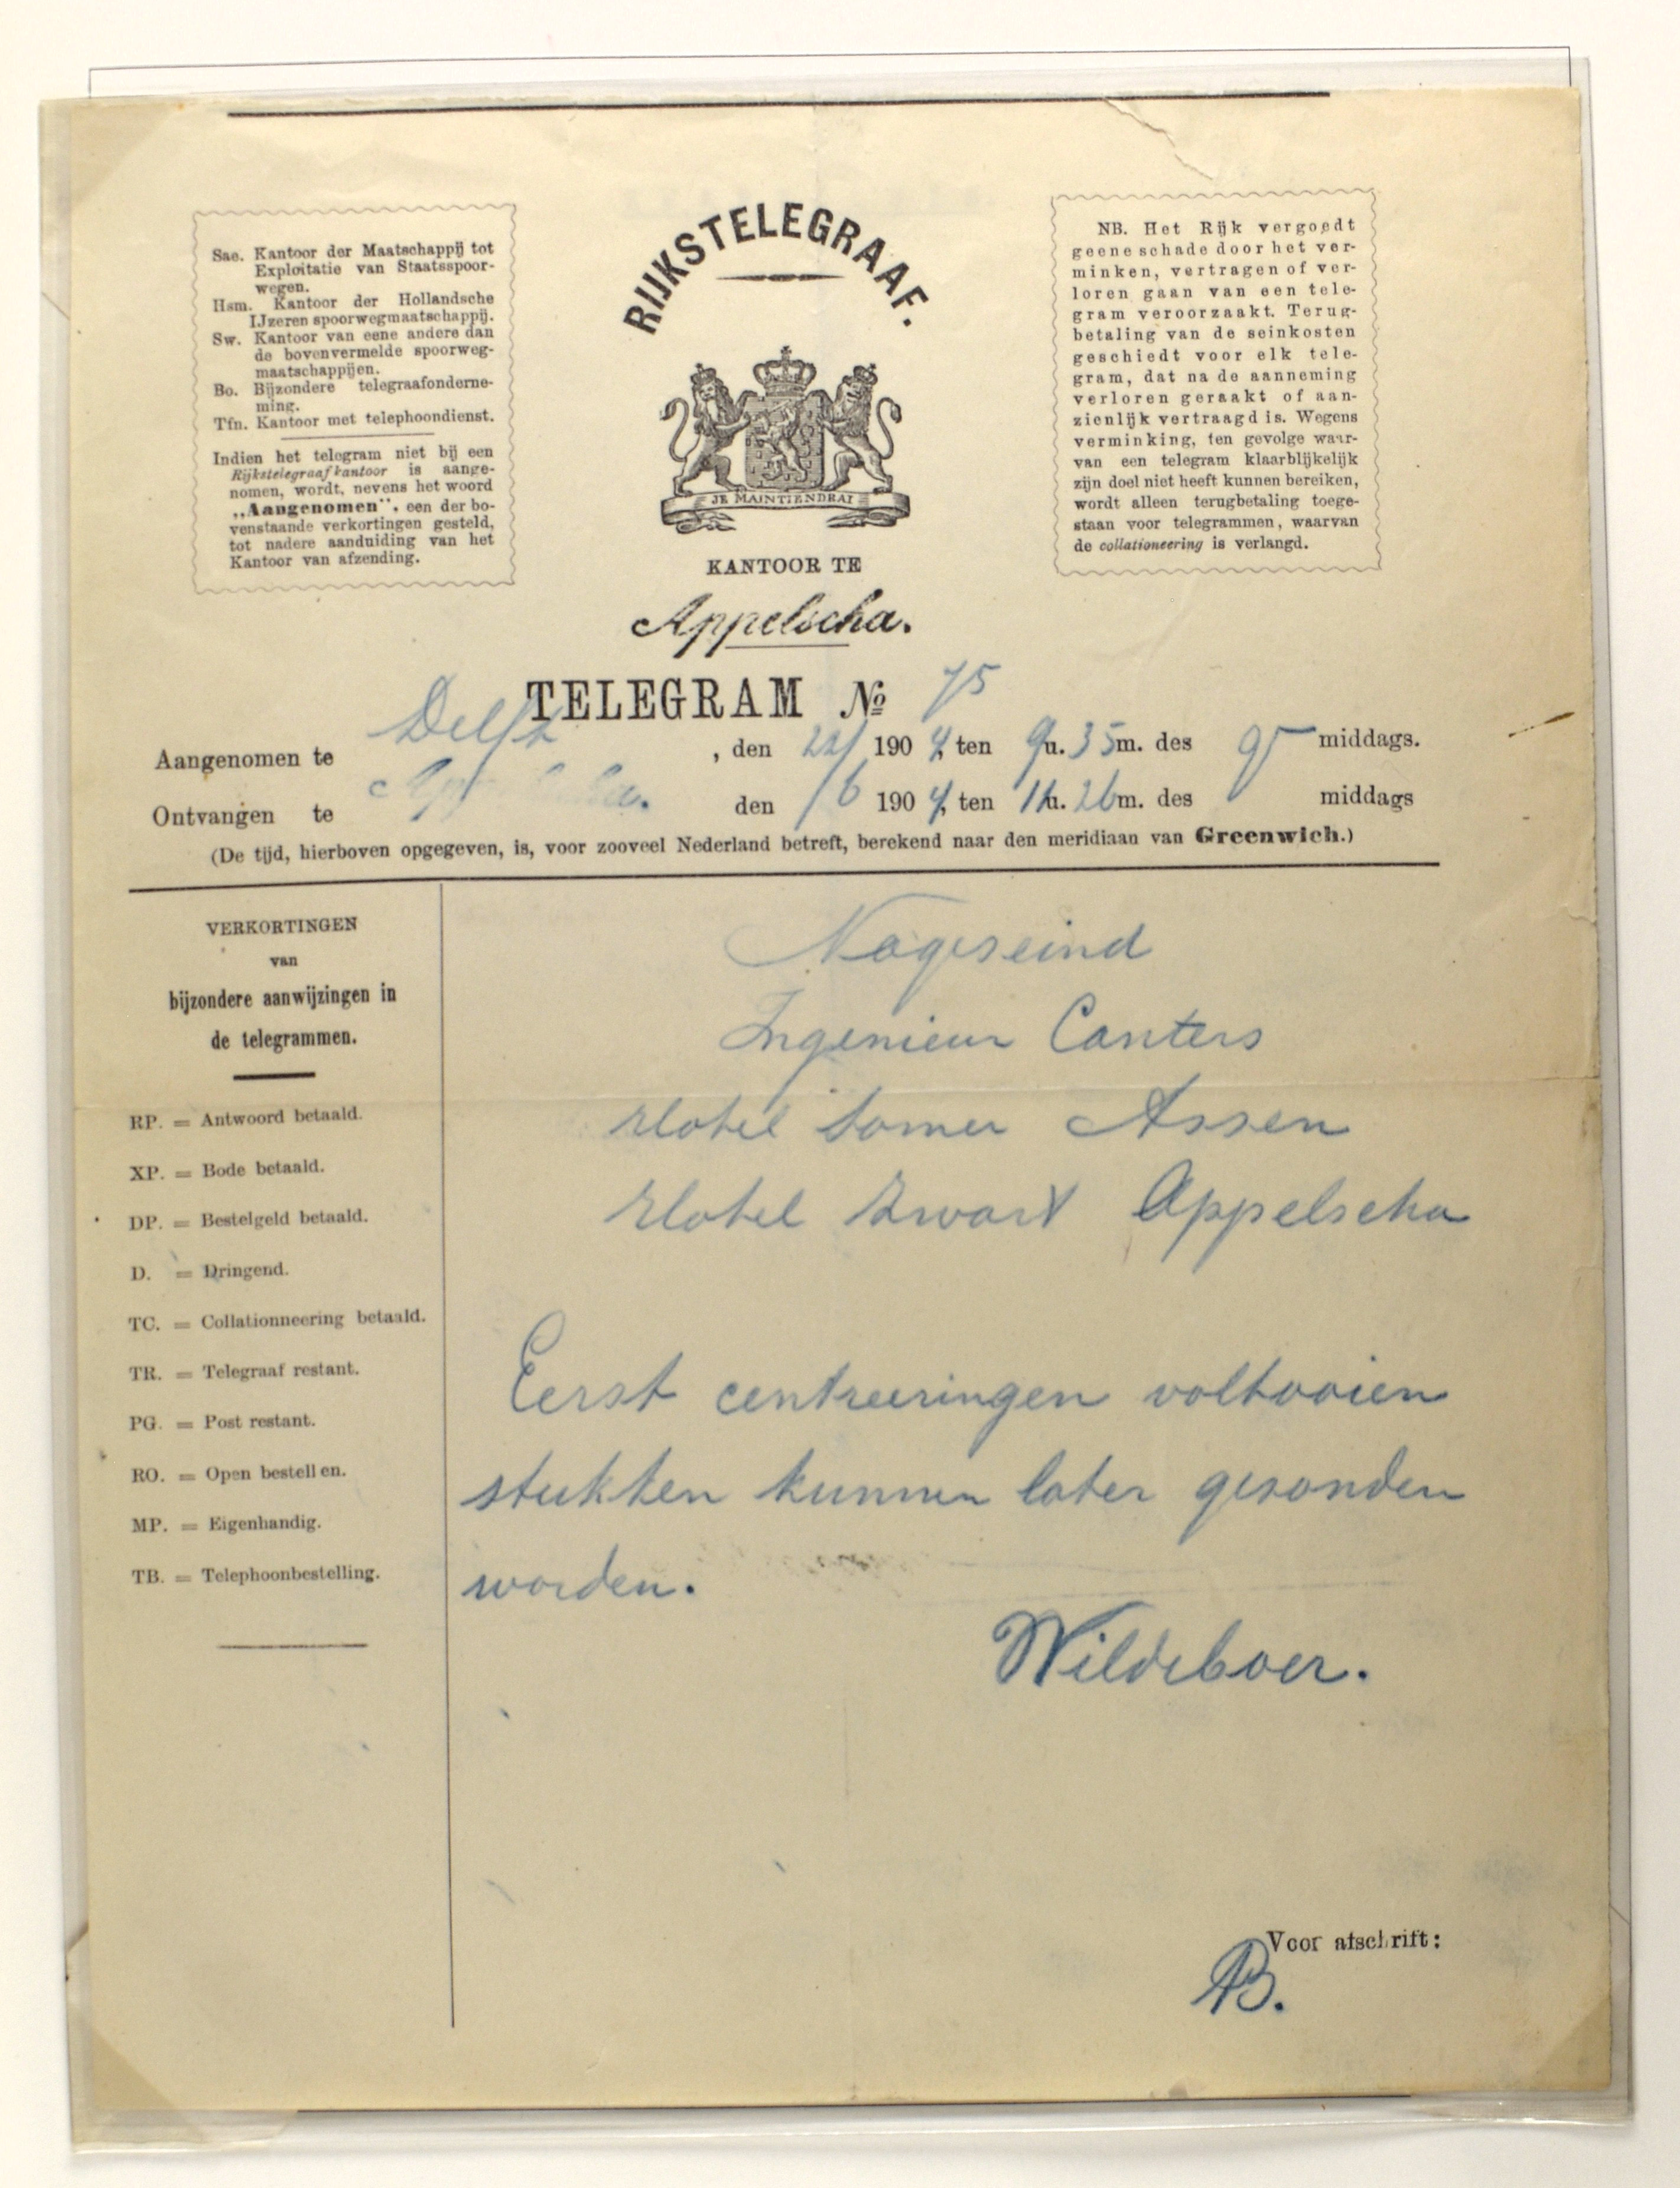 Sae. Kantoor der Maatschappij tot
Exploitatie van Staatsspoor-
wegen.
Hsm. Kantoor der Hollandsche
IJzeren spoorwegmaatschappij.
Sw. Kantoor van eene andere dan
de bovenvermelde spoorweg-
maatschappijen.
Bo. Bijzondere telegraafonderne-
ming.
Tfn. Kantoor met telephoondienst.
Indien het telegram niet bij een
Rijkstelegraafkantoor is aange-
nomen, wordt, nevens het woord
„Aangenomen", een der bo-
venstaande verkortingen gesteld,
tot nadere aanduiding van het
Kantoor van afzending.
RIJKSTELEGRAAF.
JE MAINTIENDRAI
KANTOOR TE
Appelscha.
NB. Het Rijk vergoedt
geene schade door het ver-
minken, vertragen of ver-
loren gaan van een tele-
gram veroorzaakt. Terug-
betaling van de seinkosten
geschiedt voor elk tele-
gram, dat na de aanneming
verloren geraakt of aan-
zienlijk vertraagd is. Wegens
verminking, ten gevolge waar-
van een telegram klaarblijkelijk
zijn doel niet heeft kunnen bereiken,
wordt alleen terugbetaling toege-
staan voor telegrammen, waarvan
de collationeering is verlangd.
TELEGRAM No 75
Aangenomen te Delft, den 22/ 1904, ten 9u. 35m. des middags.
Ontvangen te den /6 1904, ten 11u. 26m. des middags
(De tijd, hierboven opgegeven, is, voor zooveel Nederland betreft, berekend naar den meridiaan van Greenwich.)
VERKORTINGEN
van
bijzondere aanwijzingen in
de telegrammen.
RP. = Antwoord betaald.
XP. = Bode betaald.
DP. = Bestelgeld betaald.
D. = Dringend.
TC. = Collationneering betaald.
TR. = Telegraaf restant.
PG. = Post restant.
RO. = Open bestellen.
MP. = Eigenhandig.
TB. = Telephoonbestelling.
Nageseind
Ingenieur Canters
Hotel Somer Assen
Hotel Zwart Appelscha
Eerst centreeringen voltooien
stukken kunnen later gezonden
worden.
Wildeboer.
Voor afschrift:
AB.